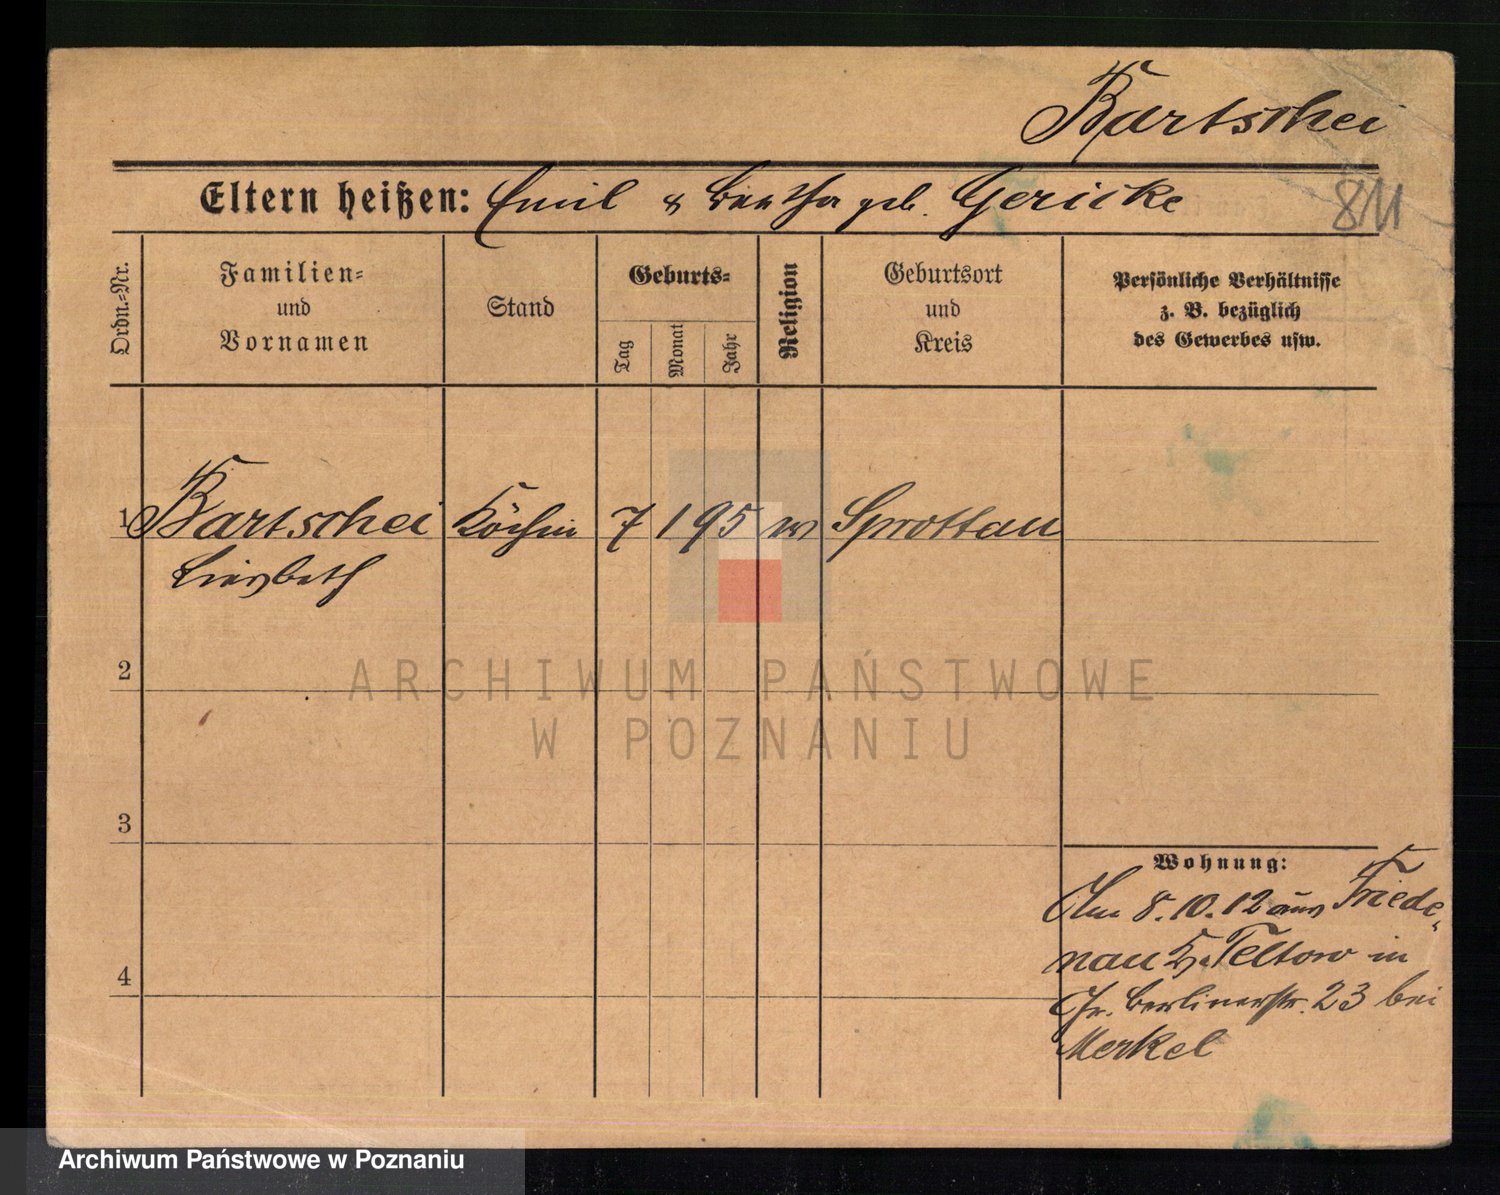 Bartschei
Eltern heißen: Emil & Bertha geb. Gericke
811
Ordn.-Nr.
Familien-
und
Vornamen
Stand
Geburts-
Tag
Monat
Jahr
Religion
Geburtsort
und
Kreis
Persönliche Verhältnisse
z. B. bezüglich
des Gewerbes usw.
1 Bartschei Köchin 7 1 95 Sprottau
Liesbeth
2
3
4
Wohnung:
Am 8.10.12 aus Friede-
nau Kr. Teltow in
Gr. Berlinerstr. 23 bei
Merkel
ARCHIWUM PAŃSTWOWE
W POZNANIU
Archiwum Państwowe w Poznaniu